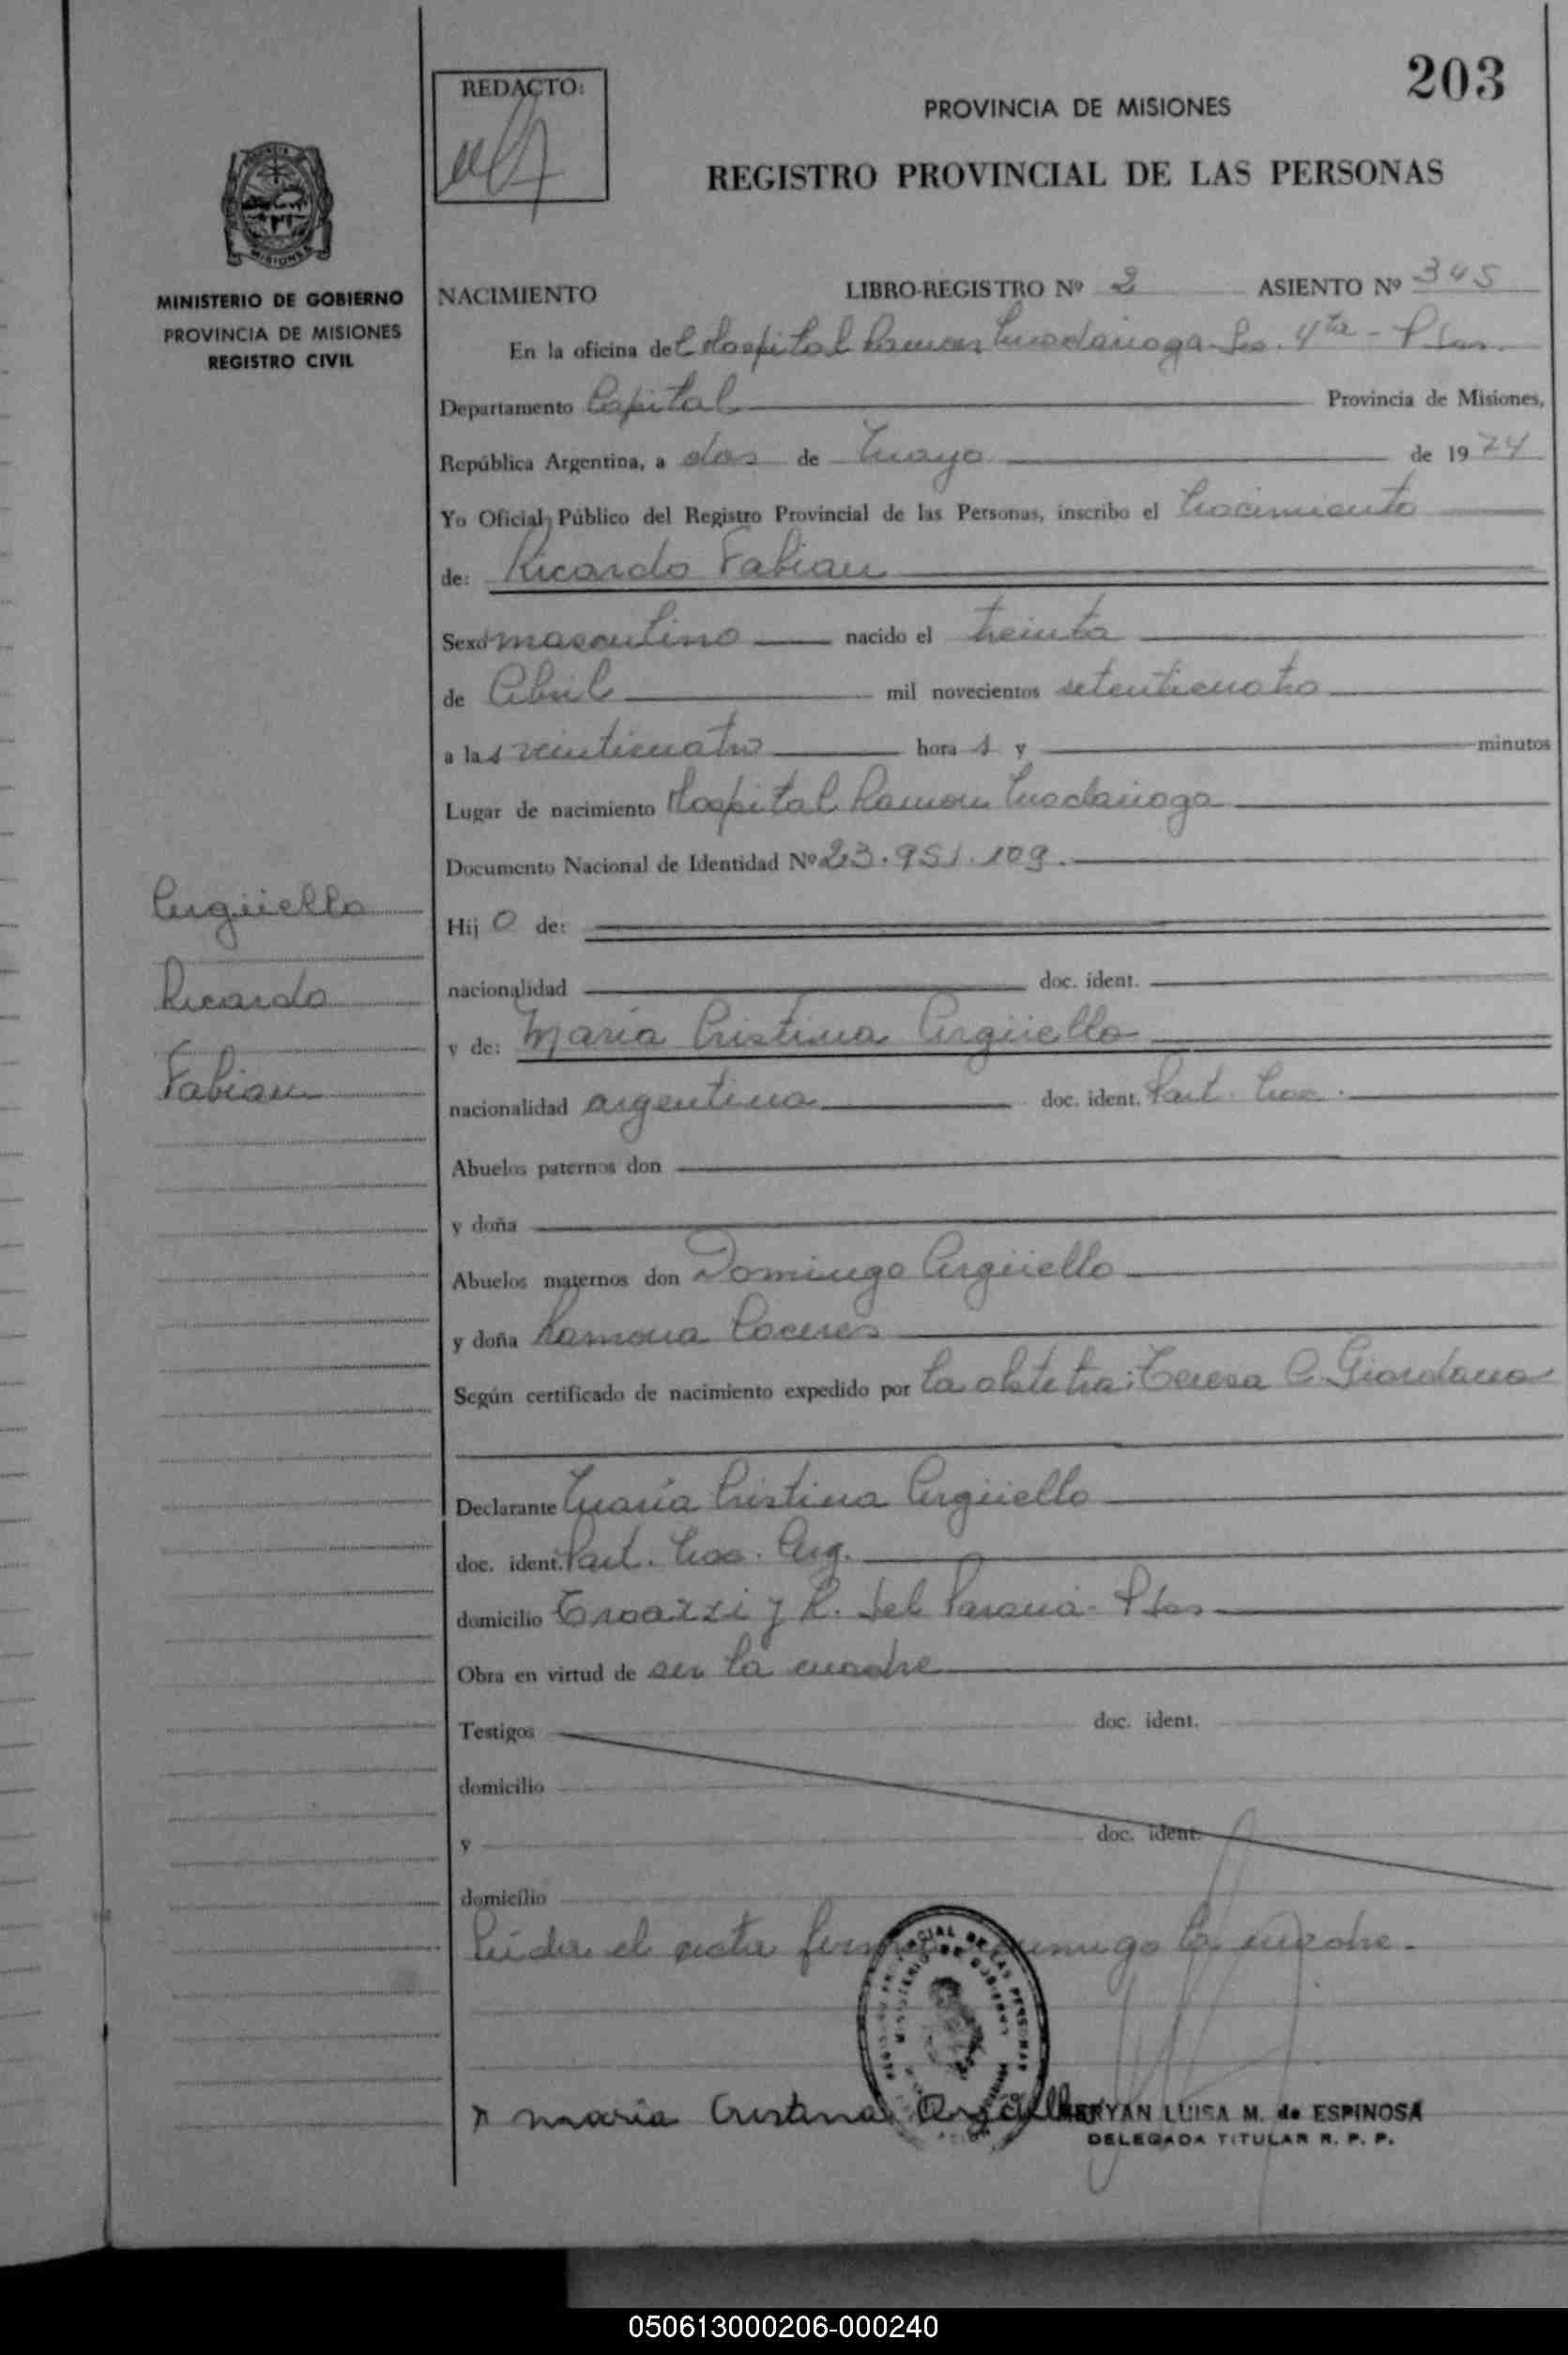 203
REDACTO:
PROVINCIA DE MISIONES
REGISTRO PROVINCIAL DE LAS PERSONAS
MISIONES
MINISTERIO DE GOBIERNO
PROVINCIA DE MISIONES
REGISTRO CIVIL
NACIMIENTO LIBRO-REGISTRO Nº 2 ASIENTO Nº 345
En la oficina del Hospital Ramon Madariaga Sec. 4ta - Pdas.
Departamento Capital Provincia de Misiones,
República Argentina, a dos de Mayo de 1974
Yo Oficial Público del Registro Provincial de las Personas, inscribo el Nacimiento
de: Ricardo Fabian
Sexo masculino nacido el treinta
de Abril mil novecientos setenticuatro
a las veinticuatro horas y minutos
Lugar de nacimiento Hospital Ramon Madariaga
Documento Nacional de Identidad Nº 23.951.109.
Argüello
Ricardo
Fabian
Hijo de:
nacionalidad doc. ident.
y de: Maria Cristina Argüello
nacionalidad argentina doc. ident. Part. Nac.
Abuelos paternos don
y doña
Abuelos maternos don Domingo Argüello
y doña Ramona Caceres
Según certificado de nacimiento expedido por la obstetra: Teresa C. Giordano
Declarante Maria Cristina Argüello
doc. ident. Part. Nac. Arg.
domicilio Troazzi y R. del Paraná - Pdas
Obra en virtud de ser la madre
Testigos doc. ident.
domicilio
y doc. ident.
domicilio
Leida el acta firma conmigo la madre.
x maria Cristina Argüello
MERYAN LUISA M. de ESPINOSA
DELEGADA TITULAR R. P. P.
050613000206-000240